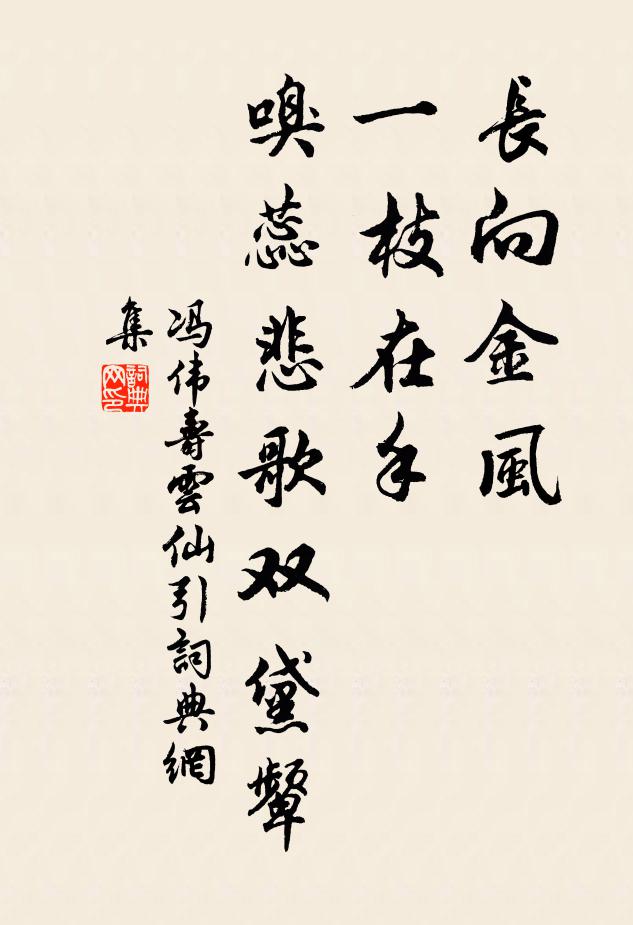 長向金風
一枝在手
嗅蕊悲歌双黛顰
冯伟壽雲仙引詞典網
集
詞典
网印